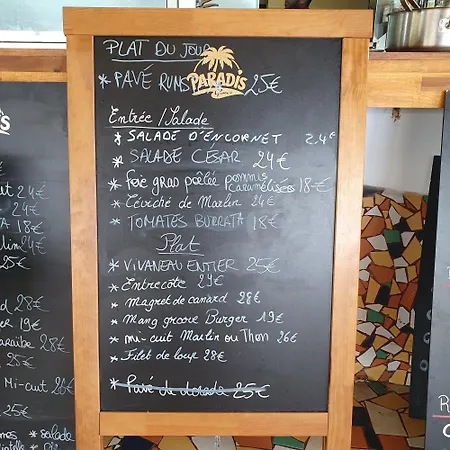 PLAT DU JOUR
* PAVÉ RUMS 25€
PARADIS
Entrée / Salade
* SALADE D'ENCORNET 24€
* SALADE CÉSAR 24€
* foie gras poêlée pommes caramélisées 18-€
* Céviché de Marlin 24€
* TOMATES BURRATA 18€
Plat
* VIVANEAU ENTIER 25€
* Entrecôte 29€
* Magret de canard 28€
* Mang groove Burger 19€
* mi-cuit Marlin ou Thon 26€
* Filet de loup 28€
* Pavé de dorade 25€
24€
24€
24€
25€
28€
19€
28€
25€
Mi-cuit 26€
25€
* salade